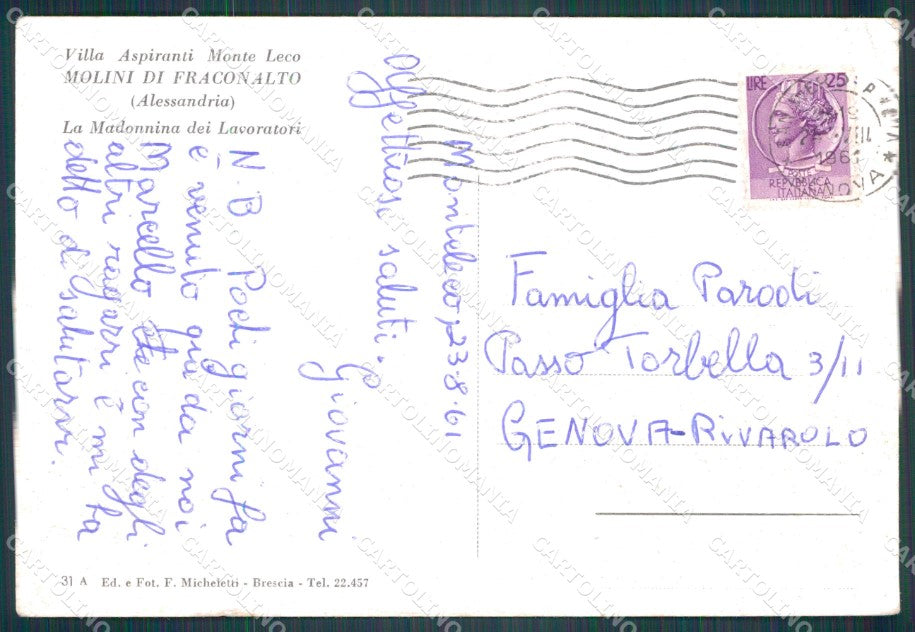 Villa Aspiranti Monte Leco
MOLINI DI FRACONALTO
(Alessandria)
La Madonnina dei Lavoratori
Monteleco, 23-8-61
Affettuosi saluti.
Giovanni
N.B Pochi giorni fa
è venuto qui da noi
Marcello con degli
altri ragazzi è mi ha
detto di salutarvi.
LIRE 25
REPVBBLICA
ITALIANA
Famiglia Parodi
Passo Torbella 3/11
GENOVA-RIVAROLO
31 A Ed. e Fot. F. Micheletti - Brescia - Tel. 22.457
CARTOLINOMANIA